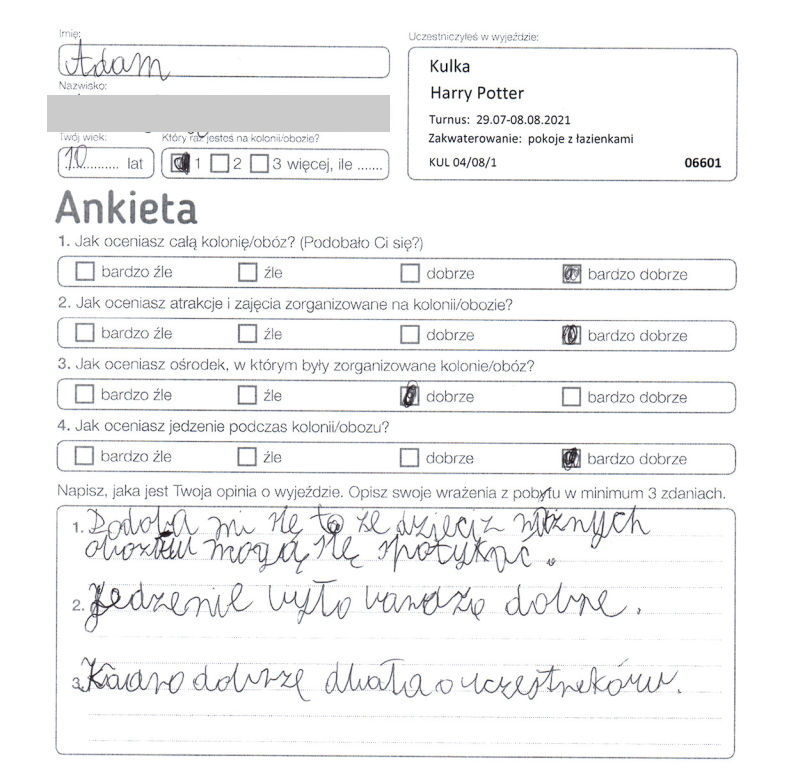 Imię:
Adam
Nazwisko:
Twój wiek:
10 lat
Który raz jesteś na kolonii/obozie?
1 2 3 więcej, ile .......
Uczestniczyłeś w wyjeździe:
Kulka
Harry Potter
Turnus: 29.07-08.08.2021
Zakwaterowanie: pokoje z łazienkami
KUL 04/08/1 06601
Ankieta
1. Jak oceniasz całą kolonię/obóz? (Podobało Ci się?)
bardzo źle źle dobrze bardzo dobrze
2. Jak oceniasz atrakcje i zajęcia zorganizowane na kolonii/obozie?
bardzo źle źle dobrze bardzo dobrze
3. Jak oceniasz ośrodek, w którym były zorganizowane kolonie/obóz?
bardzo źle źle dobrze bardzo dobrze
4. Jak oceniasz jedzenie podczas kolonii/obozu?
bardzo źle źle dobrze bardzo dobrze
Napisz, jaka jest Twoja opinia o wyjeździe. Opisz swoje wrażenia z pobytu w minimum 3 zdaniach.
1. Podoba mi się to że dzieci z różnych
obozów mogą się spotykać.
2. Jedzenie było bardzo dobre.
3. Kadra dobrze dbała o uczestników.